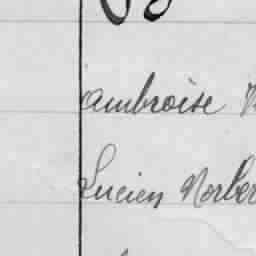 ambroise
Lucien Norber